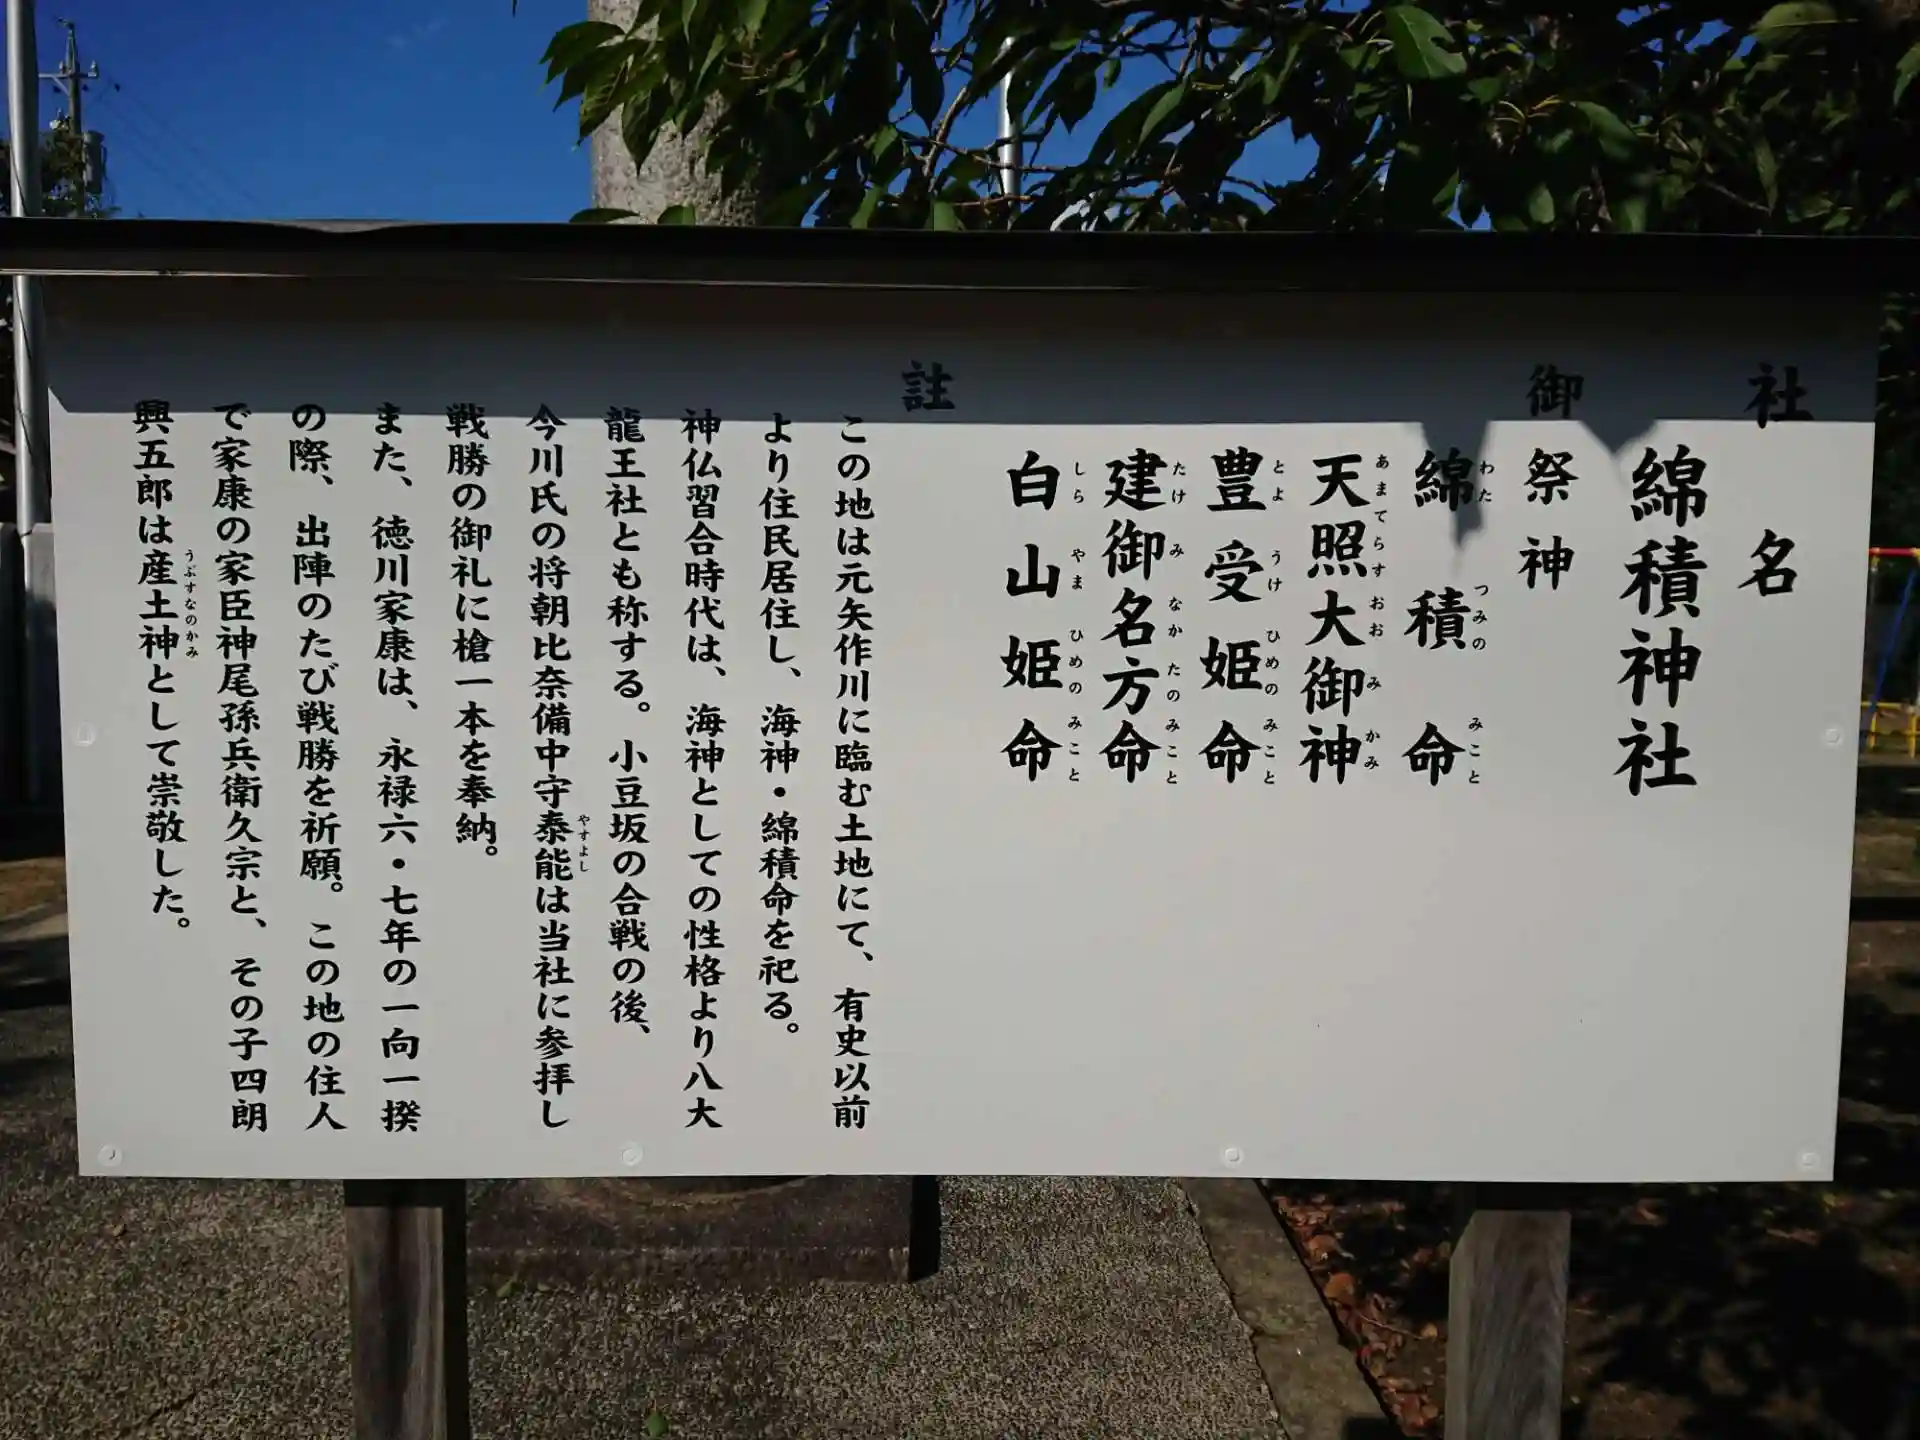 社名
綿積神社
御祭神
綿積命
わたつみのみこと
天照大御神
あまてらすおおみかみ
豊受姫命
とようけひめのみこと
建御名方命
たけみなかたのみこと
白山姫命
しらやまひめのみこと
註
この地は元矢作川に臨む土地にて、有史以前
より住民居住し、海神・綿積命を祀る。
神仏習合時代は、海神としての性格より八大
龍王社とも称する。小豆坂の合戦の後、
今川氏の将朝比奈備中守泰能は当社に参拝し
やすよし
戦勝の御礼に槍一本を奉納。
また、徳川家康は、永禄六・七年の一向一揆
の際、出陣のたび戦勝を祈願。この地の住人
で家康の家臣神尾孫兵衛久宗と、その子四朗
興五郎は産土神として崇敬した。
うぶすなのかみ